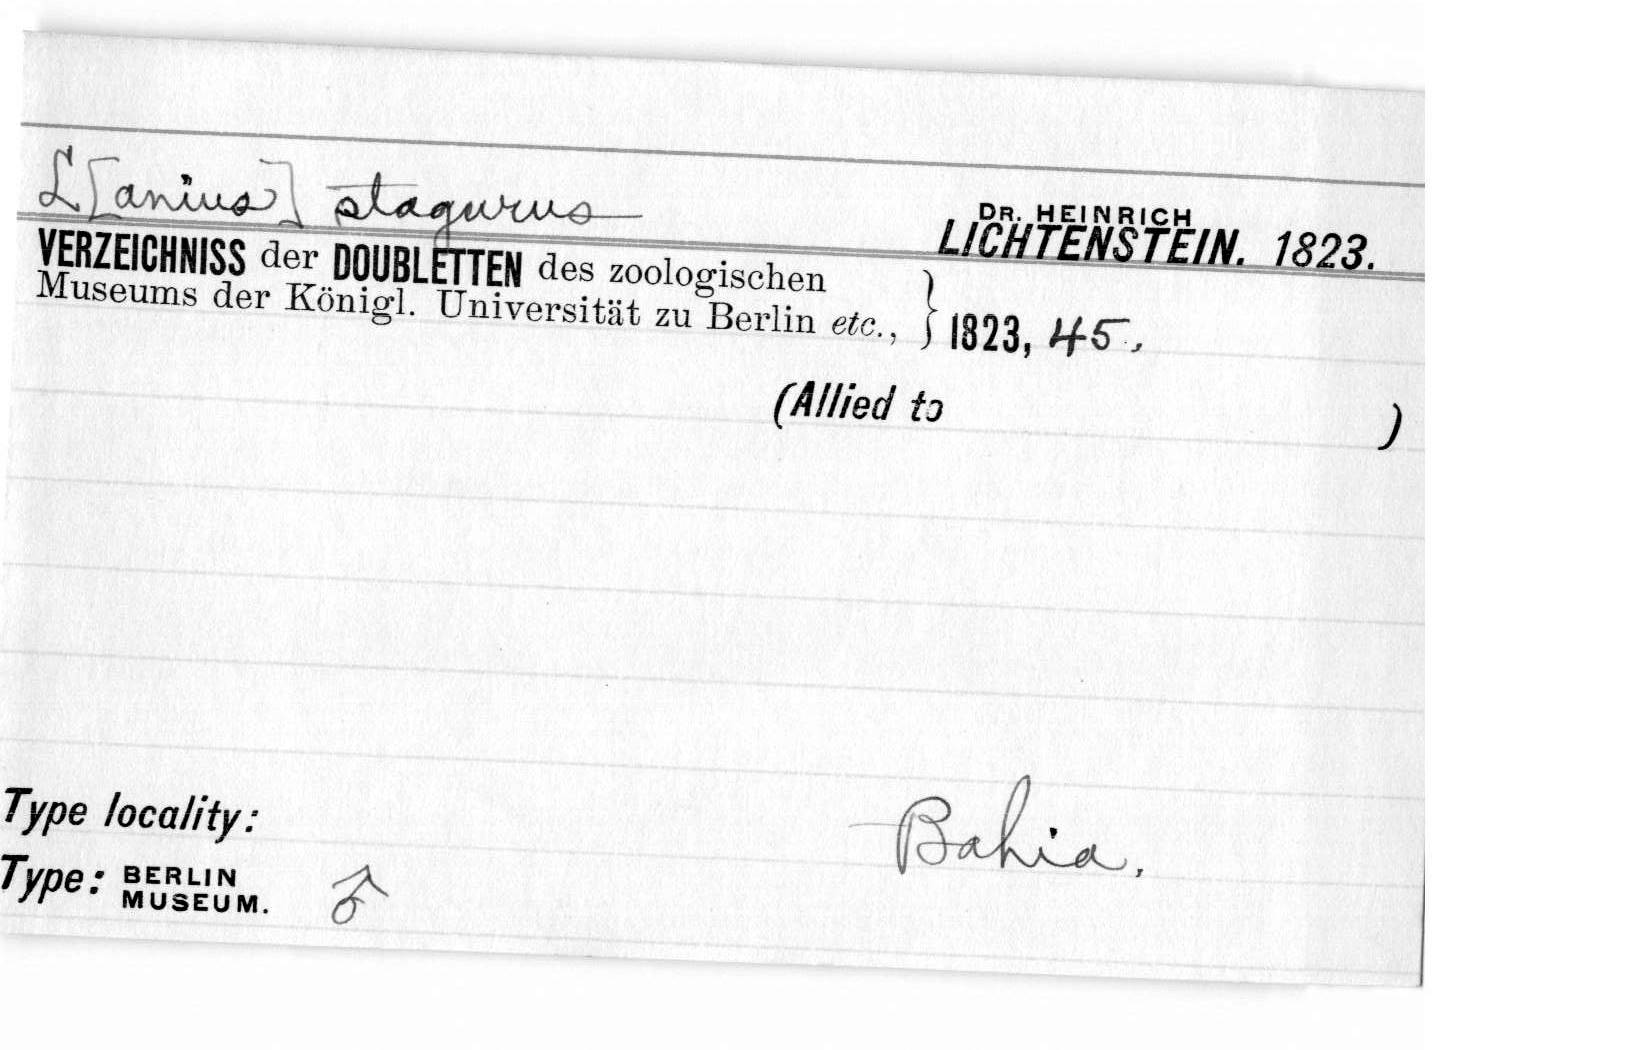 L[anius] stagurus
DR. HEINRICH
LICHTENSTEIN. 1823.
VERZEICHNISS der DOUBLETTEN des zoologischen
Museums der Königl. Universität zu Berlin etc., } 1823, 45.,
(Allied to )
Type locality: Bahia.,
Type: BERLIN
MUSEUM. ♂